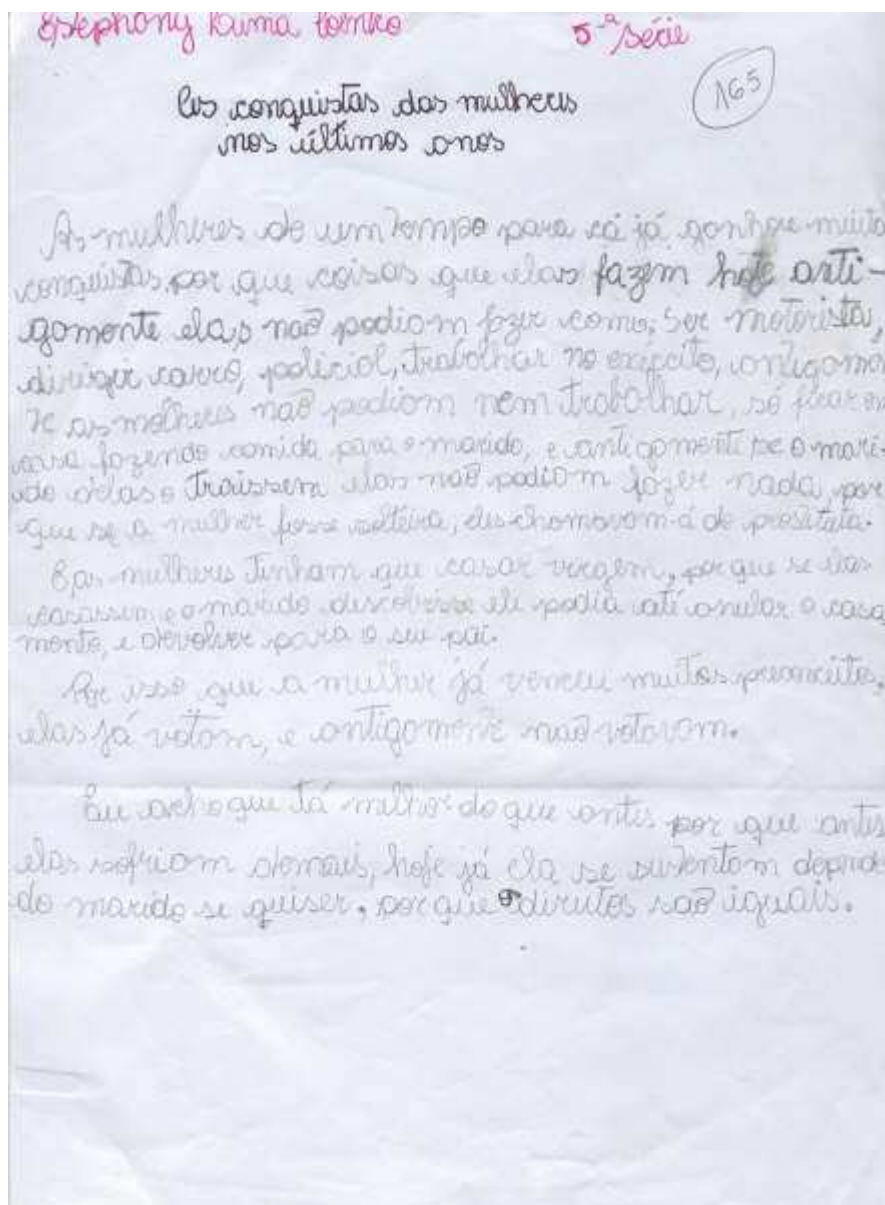 5ª série
165
As conquistas das mulheres
nos últimos anos
As mulheres de um tempo para cá já ganhou muita
conquistas, por que coisas que elas fazem hoje anti-
gamente elas não podiam fazer como; Ser motorista,
dirigir carro, policial, trabalhar no exército, antigamen
te as molheres não podiam nem trabalhar, só ficar em
casa fazendo comida para o marido, e antigamente se o mari-
do delas o traissem elas não podiam fazer nada, por
que se a mulher fosse solteira, eles chamavam-á de
E as mulheres tinham que casar virgem, porque se elas
casassem e o marido descobrisse ele podia até anular o casa
mento, e devolver para o seu pai.
Por isso que a mulher já venceu muitos
elas já votam, e antigamente não votavam.
Eu acho que tá melhor do que antes por que antes
elas sofriam demais, hoje já ela se sustentam depende
do marido se quiser, porque direitos são iguais.